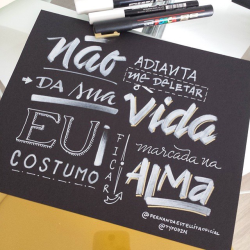 Não
ADIANTA
me DELETAR
DA sua
vida
EU
COSTUMO
FICAR
marcada na
ALMA
@FERNANDAESTELLITAOFICIAL